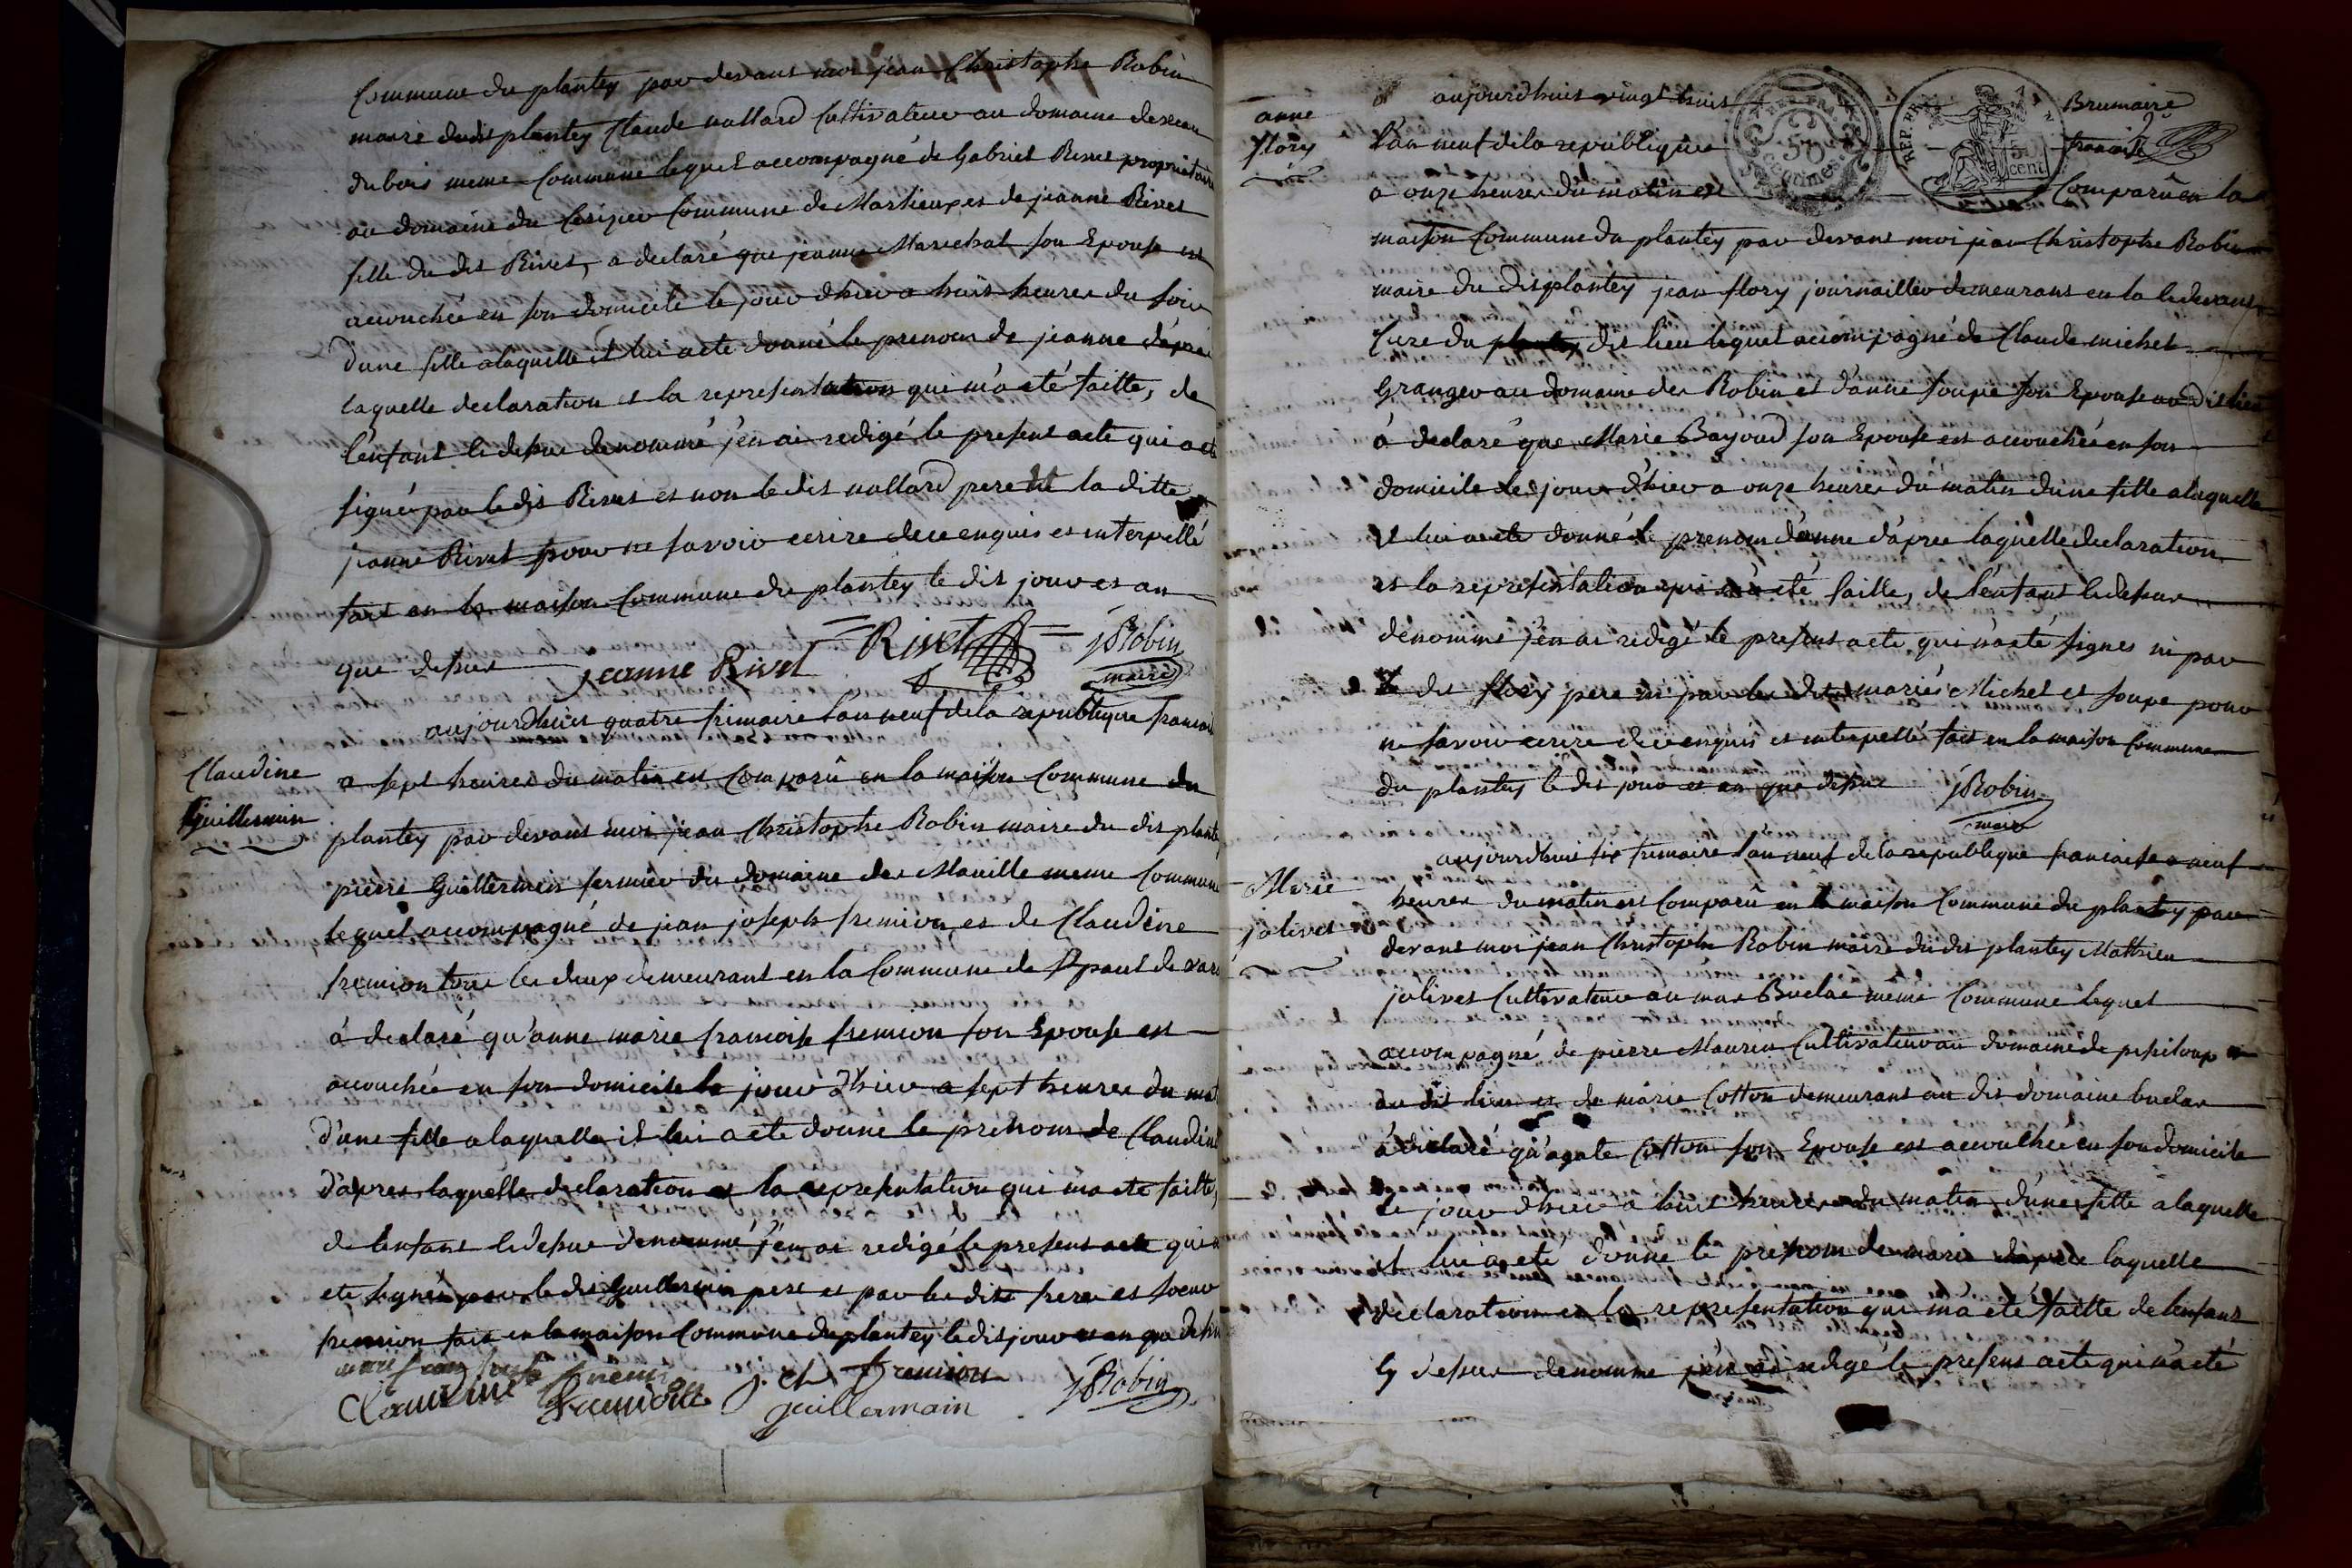 Commune du plantey par devant moi jean Christophe Robin
maire dudit plantey Claude nallard Cultivateur au domaine
du bois meme Commune lequel accompagné de Gabriel Rivet proprietaire
au domaine du Commune de Marlieux et de jeanne Rivet
fille du dit Rivet, a declaré que jeanne Marechal son Epouse est
accouchée en son domicile le jour d'hier a huit heures du soir
d'une fille alaquelle il lui a ete donné le prenom de jeanne d'apres
laquelle declaration et la representation qui m'a eté faitte, de
l'enfant ci dessus denommé j'en ai redigé le present acte qui a eté
signé par le dit Rivet et non le dit nallard pere la ditte
jeanne Rivet pour ne savoir ecrire de ce enquis et interpellé
fait en la maison Commune du plantey le dit jour et an
que dessus jeanne Rivet Rivet JRobin
maire
aujourdhuit quatre frimaire l'an neuf de la republique francaise
Claudine
Guillermin
a sept heures du matin est Comparû en la maison Commune du
plantey par devant moi jean Christophe Robin maire du dit plantey
pierre Guillermin fermier du domaine des Manille meme Commune
lequel accompagné de jean joseph fremion et de Claudine
fremion tous les deux demeurant en la Commune de St paul de varax
à declaré qu'anne marie francoise fremion son Epouse est
accouchée en son domicile le jour d'hier a sept heures du matin
d'une fille alaquelle il lui a ete donne le prenom de Claudine
d'apres laquelle declaration et la representation qui m'a ete faitte,
de l'enfant ci dessus denommé j'en ai redigé le present acte qui a
ete signé par le dit Guillermin pere et par les dits frere et soeur
fremion fait en la maison Commune du plantey le dit jour et an que dessus
Claudine fremion J. ch fremion
guillermain JRobin
anne
flory
aujourdhuit vingt huit Brumaire
l'an neuf de la republique francaise
a onze heures du matin est Comparû en la
REP. FRA. 50 centimes
REP. FRA. 50 cent
maison Commune du plantey par devant moi jean Christophe Robin
maire du dit plantey jean flory journaillier demeurant en la ci devant
Cure du dit lieu lequel accompagné de Claude michel
Granger au domaine des Robin et d'anne soupe son Epouse au dit lieu
à declaré que Marie Bayoud son Epouse est accouchée en son
domicile le jour d'hier a onze heures du matin d'une fille alaquelle
il lui a ete donné le prenom d'anne d'apres laquelle declaration
et la representation qui m'a eté faitte, de l'enfant ci dessus
denommé j'en ai redigé le present acte qui n'a eté signes ni par
le dit flory pere ni par les dits mariés Michel et soupe pour
ne savoir ecrire de ce enquis et interpellé fait en la maison Commune
du plantey le dit jour et an que dessus JRobin
maire
aujourdhuit six frimaire l'an neuf de la republique francaise a neuf
Marie
jolivet
heures du matin est Comparû en la maison Commune du plantey par
devant moi jean Christophe Robin maire du dit plantey Mathieu
jolivet Cultivateur au mas Buclas même Commune lequel
accompagné de pierre Maurin Cultivateur au domaine de
au dit lieu et de marie Cotton demeurant au dit domaine buclas
à declaré qu'agate Cotton son Epouse est accouchée en son domicile
le jour d'hier a huit heures du matin d'une fille alaquelle
il lui a eté donne le prenom de marie d'apres laquelle
declaration et la representation qui m'a eté faitte de l'enfant
Cy dessus denomme j'en ai redigé le present acte qui n'a eté